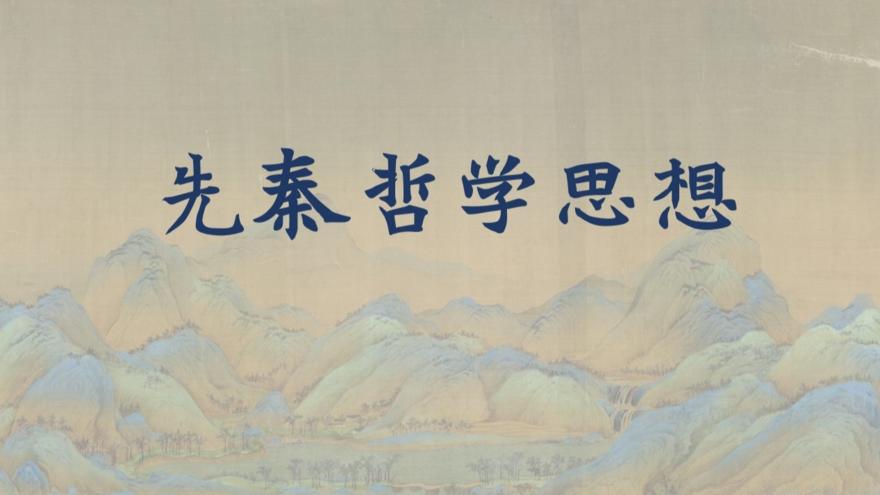 先秦哲学思想